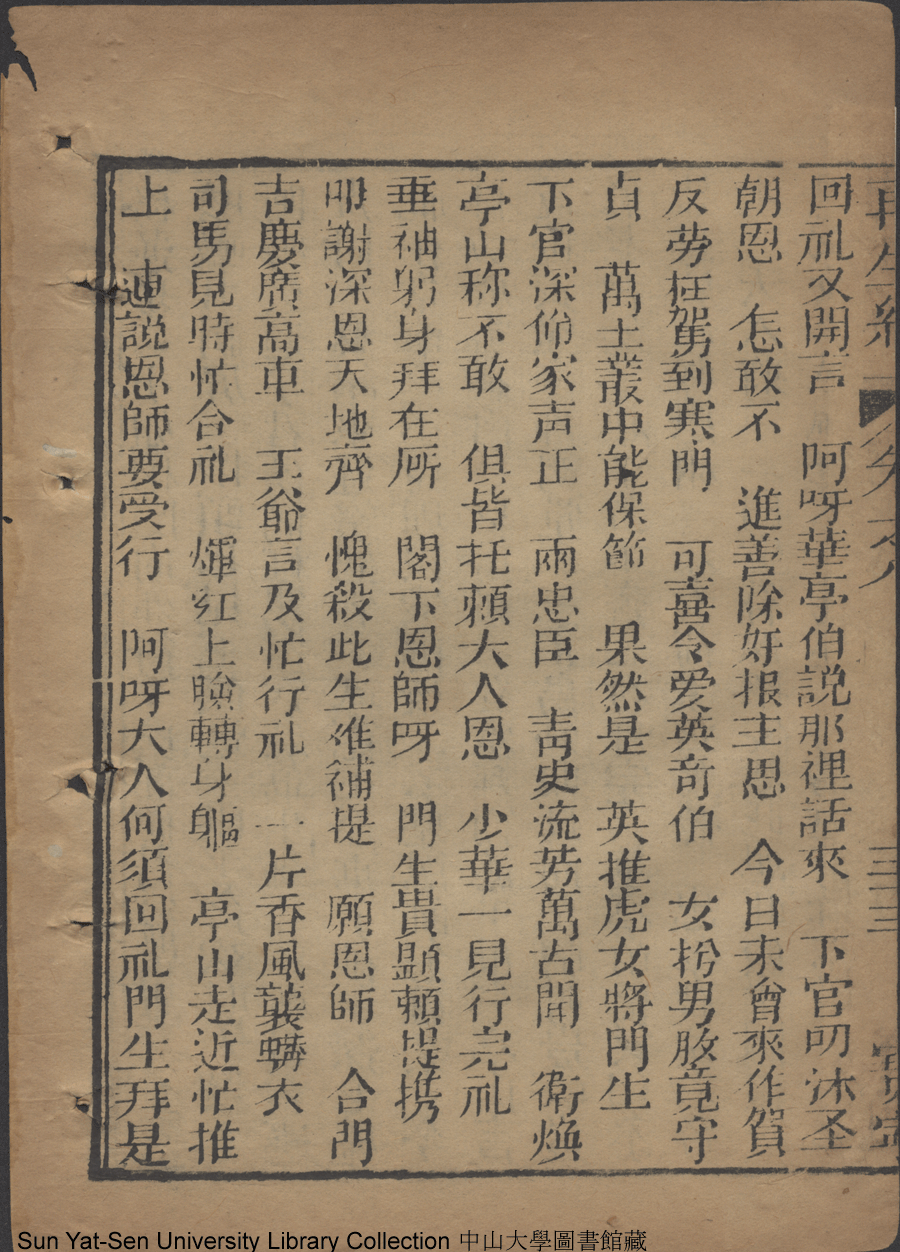 再生緣 卷之八 三三
回礼又開言 阿呀華亭伯説那裡話來 下官叨沐圣
朝恩 怎敢不 進善除奸报主恩 今日未曾來作賀
反劳枉駕到寒門 可喜令爱英奇伯 女扮男胶竟守
貞 萬土叢中能保節 果然是 英推虎女將門生
下官深仰家声正 兩忠臣 青史流芳萬古聞 衛焕
亭山称不敢 俱皆托頼大人恩 少華一見行完礼
垂袖躬身拜在所 閣下恩師呀 門生貴顯頼提携
叩謝深恩天地齊 愧殺此生难補提 願恩師 合門
吉慶廣高車 王爺言及忙行礼 一片香風襲蟒衣
司馬見時忙合礼 煇红上臉轉身軀 亭山走近忙推
上 連説恩師要受行 阿呀大人何須回礼門生拜是
Sun Yat-Sen University Library Collection 中山大學圖書館藏